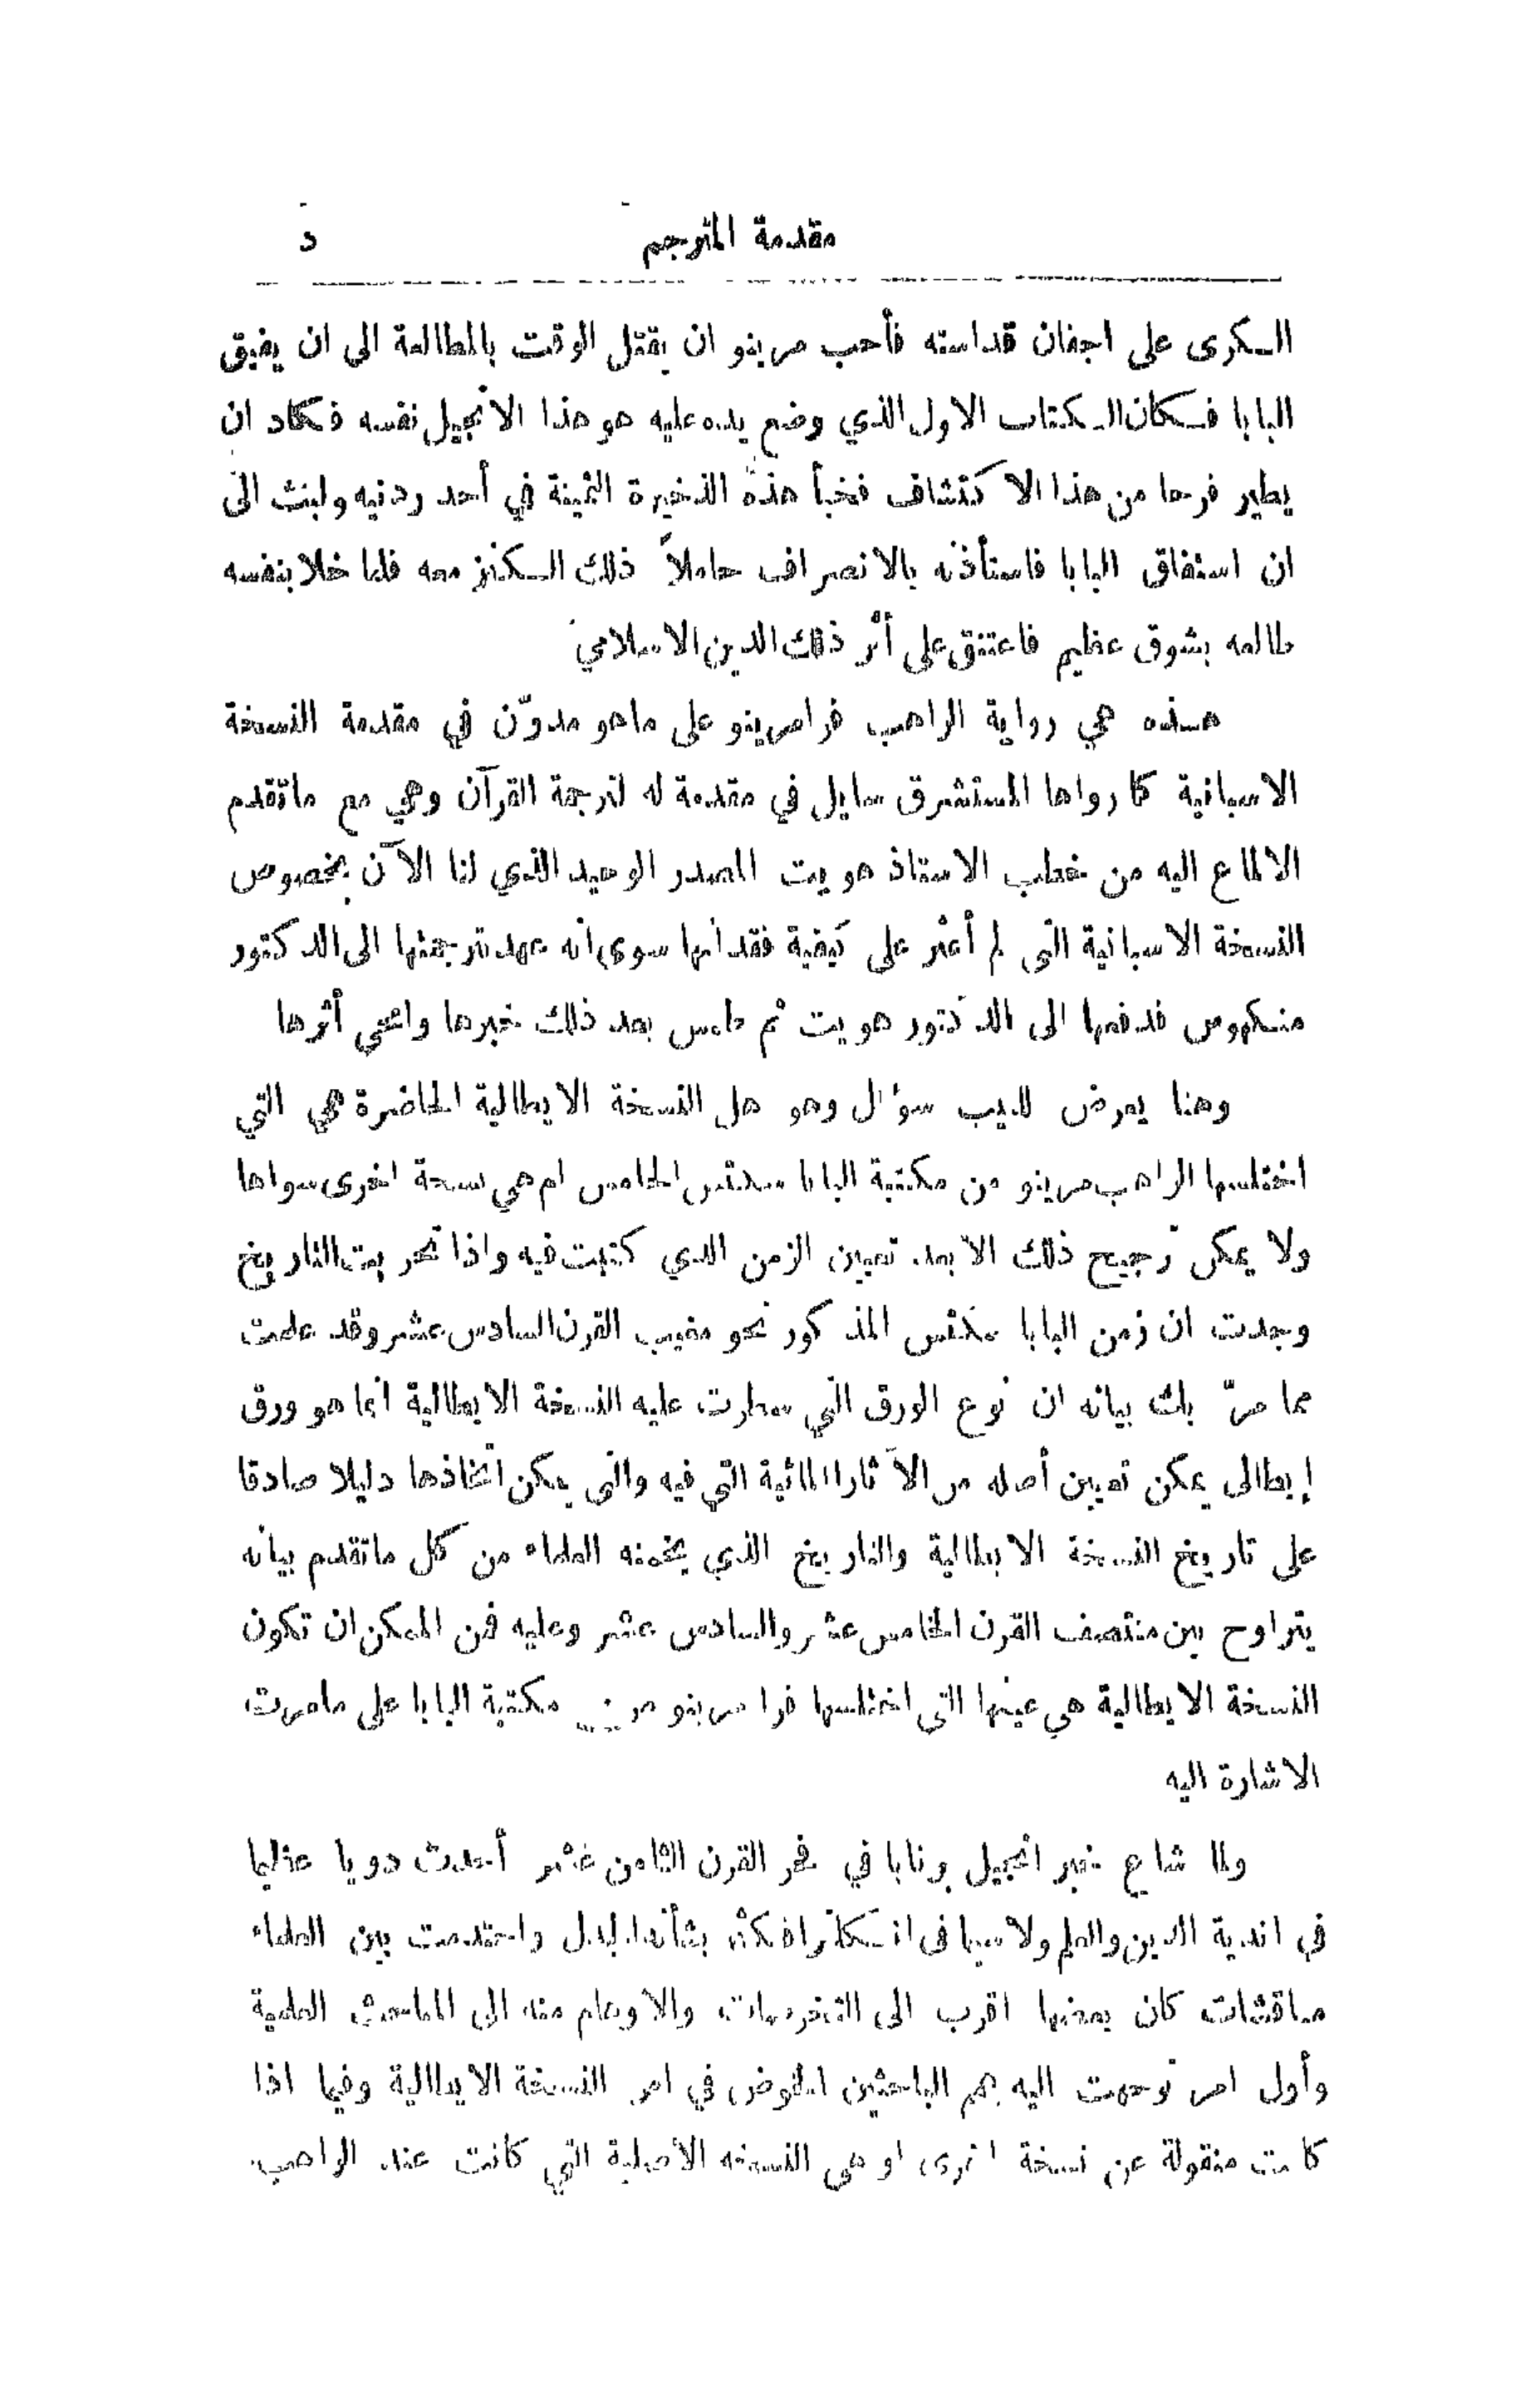 مقدمة المترجم د
الكرى على اجفان قداسته فأحب مرينو ان يقتل الوقت بالمطالعة الى ان يفيق
البابا فكان الكتاب الاول الذي وضع يده عليه هو هذا الانجيل نفسه فكاد ان
يطير فرحا من هذا الاكتشاف فخبأ هذه الذخيرة الثمينة في أحد ردنيه ولبث الى
ان استفاق البابا فاستأذنه بالانصراف حاملاً ذلك الكنز معه فلما خلا بنفسه
طالعه بشوق عظيم فاعتنق على أثر ذلك الدين الاسلامي
هذه هي رواية الراهب فرامرينو على ماهو مدوّن في مقدمة النسخة
الاسبانية كما رواها المستشرق سايل في مقدمة له لترجمة القرآن وهي مع ماتقدم
الالماع اليه من خطب الاستاذ هويت المصدر الوحيد الذي لنا الآن بخصوص
النسخة الاسبانية التى لم أعثر على كيفية فقدانها سوى انه عهد بترجمتها الى الدكتور
منكهوس فدفعها الى الدكتور هويت ثم طمس بعد ذلك خبرها وامحى أثرها
وهنا يعرض للبيب سؤال وهو هل النسخة الايطالية الحاضرة هي التي
اختلسها الراهب مرينو من مكتبة البابا سكتس الخامس ام هي نسخة اخرى سواها
ولا يمكن ترجيح ذلك الا بعد تعيين الزمن الذي كتبت فيه واذا تحريت التاريخ
وجدت ان زمن البابا سكتس المذكور نحو مغيب القرن السادس عشر وقد علمت
مما مرّ بك بيانه ان نوع الورق التي سطرت عليه النسخة الايطالية انما هو ورق
إيطالى يمكن تعيين أصله من الآثار المائية التي فيه والتى يمكن اتخاذها دليلا صادقا
على تاريخ النسخة الايطالية والتاريخ الذي يخمنه العلماء من كل ماتقدم بيانه
يتراوح بين منتصف القرن الخامس عشر والسادس عشر وعليه فمن الممكن ان تكون
النسخة الايطالية هي عينها التى اختلسها فرا مرينو من مكتبة البابا على مامرت
الاشارة اليه
ولما شاع خبر انجيل برنابا في فجر القرن الثامن عشر أحدث دويا عظيما
في اندية الدين والعلم ولاسيما فى انكلترا فكثر بشأنه الجدل واحتدمت بين العلماء
مناقشات كان بعضها اقرب الى التخرصات والاوهام منه الى المباحث العلمية
وأول امر توجهت اليه همم الباحثين الخوض في امر النسخة الايطالية وفيما اذا
كانت منقولة عن نسخة اخرى او هى النسخة الأصلية التي كانت عند الراهب